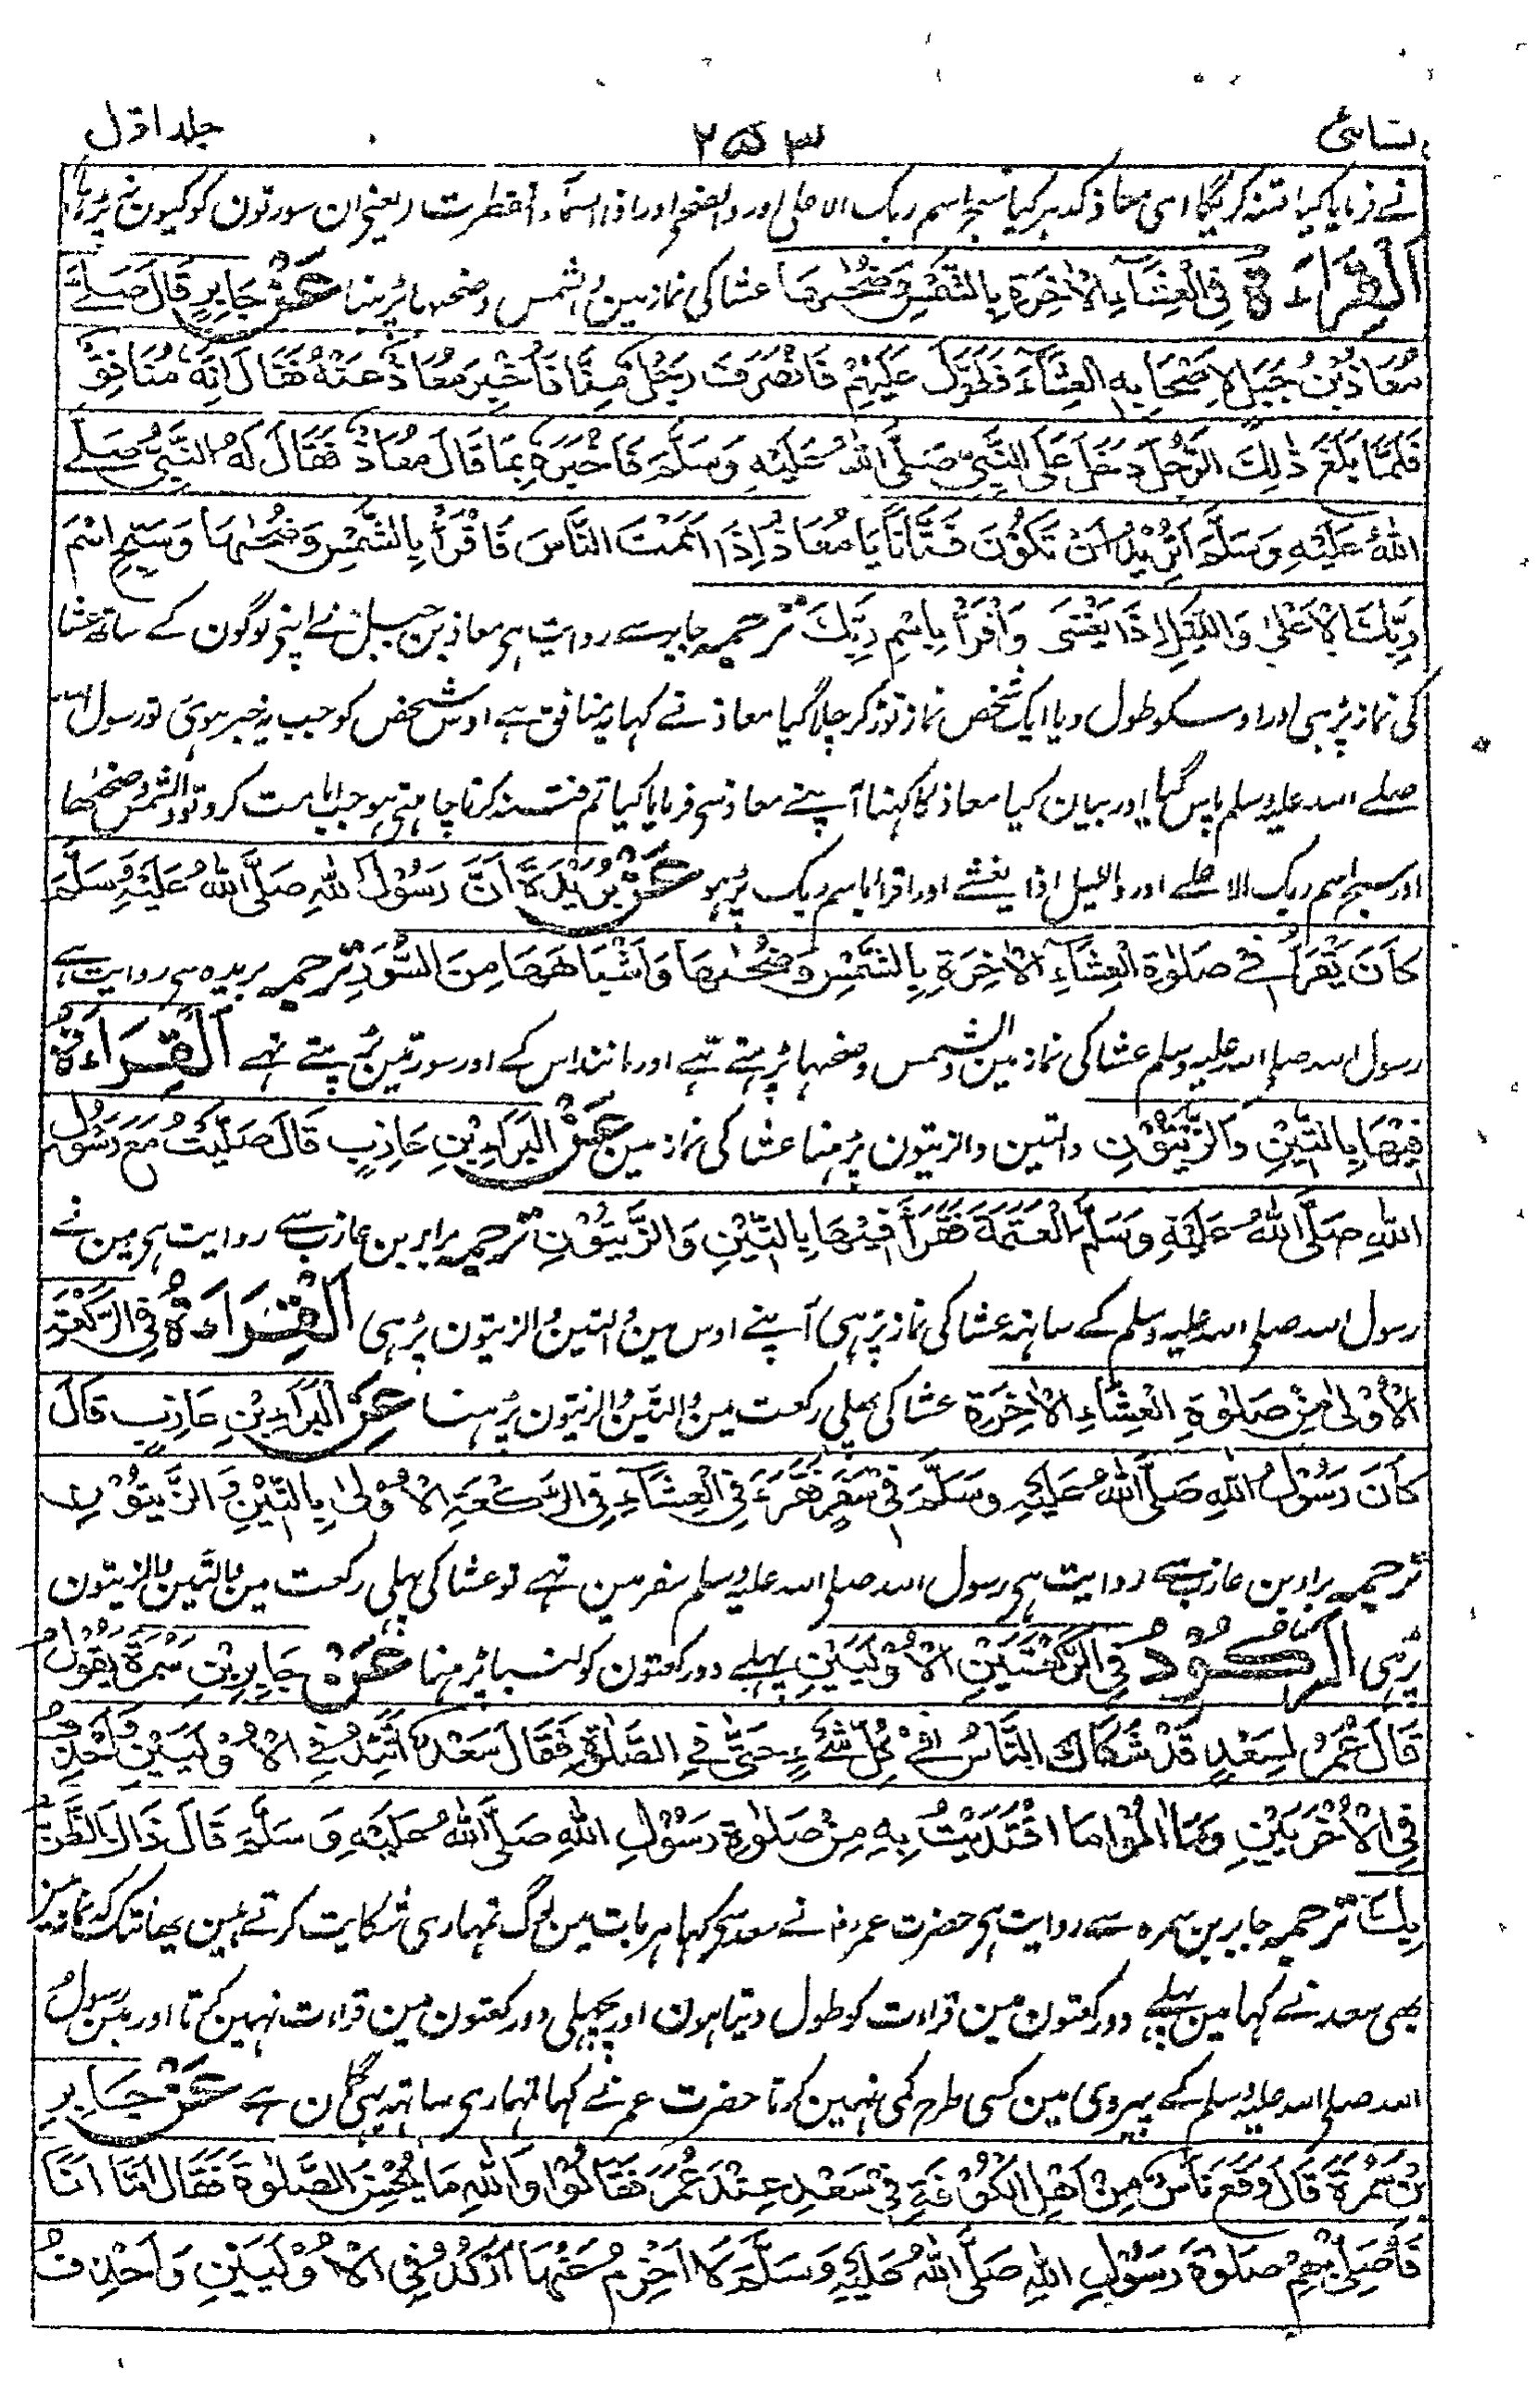 نسائی ۲۵۳ جلد اول
نے فرمایا کیا فتنہ کریگا اے معاذ کدہر گیا سبح اسم ربک الاعلی اور والضحی اور اذا السماء انفطرت یعنی ان سورتون کو کیون نہ پڑہا
اَلْقِرَاءَةُ فِي الْعِشَآءِ الْاٰخِرَةِ بِالشَّمْسِ وَضُحٰىهَا عشا کی نماز مین والشمس وضحہا پڑہنا عَنْ جَابِرٍ قَالَ صَلّٰے
مُعَاذُ بْنُ جَبَلٍ لِاَصْحَابِهِ الْعِشَآءَ فَطَوَّلَ عَلَيْهِمْ فَانْصَرَفَ رَجُلٌ مِنَّا فَاُخْبِرَ مُعَاذٌ عَنْهُ فَقَالَ اِنَّهُ مُنَافِقٌ
فَلَمَّا بَلَغَ ذٰلِكَ الرَّجُلَ دَخَلَ عَلَى النَّبِيِّ صَلَّى اللّٰهُ عَلَيْهِ وَسَلَّمَ فَاَخْبَرَهُ بِمَا قَالَ مُعَاذٌ فَقَالَ لَهُ النَّبِيُّ صَلَّے
اللّٰهُ عَلَيْهِ وَسَلَّمَ اَتُرِيْدُ اَنْ تَكُوْنَ فَتَّانًا يَا مُعَاذُ اِذَا اَمَمْتَ النَّاسَ فَاقْرَأْ بِالشَّمْسِ وَضُحٰىهَا وَسَبِّحِ اسْمَ
رَبِّكَ الْاَعْلٰى وَاللَّيْلِ اِذَا يَغْشٰى وَاقْرَأْ بِاسْمِ رَبِّكَ ترجمہ جابر سے روایت ہی معاذ بن جبل نے اپنی لوگون کے ساتھ عشا
کی نماز پڑہی اور اوسکو طول دیا ایک شخص نماز توڑ کر چلا گیا معاذ نے کہا یہ منافق ہے اوس شخص کو جب یہ خبر ہوئی تو رسول اللہ
صلے اللہ علیہ وسلم پاس گیا اور بیان کیا معاذ کا کہنا آپنے معاذ سی فرمایا کیا تم فتنہ کرنا چاہتی ہو جب امامت کرو تو والشمس وضحٰہا
اور سبح اسم ربک الاعلے اور واللیل اذا یغشے اور اقرا باسم ربک پڑہو عَنْ بُرَيْدَةَ اَنَّ رَسُوْلَ اللّٰهِ صَلَّى اللّٰهُ عَلَيْهِ وَسَلَّمَ
كَانَ يَقْرَأُ فِيْ صَلٰوةِ الْعِشَآءِ الْاٰخِرَةِ بِالشَّمْسِ وَضُحٰىهَا وَاَشْبَاهِهَا مِنَ السُّوَرِ ترجمہ بریدہ سی روایت ہے
رسول اللہ صلی اللہ علیہ وسلم عشا کی نماز مین والشمس وضحہا پڑہتے تہے اور مانند اس کے اور سورتین پڑہتے تہے اَلْقِرَاءَةُ
فِيْهَا بِالتِّيْنِ وَالزَّيْتُوْنِ والتین والزیتون پڑہنا عشا کی نماز مین عَنِ الْبَرَاءِ بْنِ عَازِبٍ قَالَ صَلَّيْتُ مَعَ رَسُوْلِ
اللّٰهِ صَلَّى اللّٰهُ عَلَيْهِ وَسَلَّمَ الْعَتَمَةَ فَقَرَأَ فِيْهَا بِالتِّيْنِ وَالزَّيْتُوْنِ ترجمہ برابر بن عازب سے روایت ہی مین نے
رسول اللہ صلی اللہ علیہ وسلم کے ساتہہ عشا کی نماز پڑہی آپنے اوس مین والتین والزیتون پڑہی اَلْقِرَاءَةُ فِي الرَّكْعَةِ
الْاُوْلٰى مِنْ صَلٰوةِ الْعِشَاءِ الْاٰخِرَةِ عشا کی پہلی رکعت مین والتین والزیتون پڑہنا عَنِ الْبَرَاءِ بْنِ عَازِبٍ قَالَ
كَانَ رَسُوْلُ اللّٰهِ صَلَّى اللّٰهُ عَلَيْهِ وَسَلَّمَ فِيْ سَفَرٍ فَقَرَءَ فِي الْعِشَآءِ فِي الرَّكْعَةِ الْاُوْلٰى بِالتِّيْنِ وَالزَّيْتُوْنِ
ترجمہ براء بن عازب سے روایت ہی رسول اللہ صلی اللہ علیہ وسلم سفر مین تہے تو عشا کی پہلی رکعت مین والتین والزیتون
پڑہی اَلرُّكُوْدُ فِي الرَّكْعَتَيْنِ الْاُوْلَيَيْنِ پہلے دو رکعتون کو لنبا پڑہنا عَنْ جَابِرِ بْنِ سَمُرَةَ يَقُوْلُ
قَالَ عُمَرُ لِسَعْدٍ قَدْ شَكَاكَ النَّاسُ فِيْ كُلِّ شَيْءٍ حَتّٰى فِي الصَّلٰوةِ فَقَالَ سَعْدٌ اَتَّئِدُ فِي الْاُوْلَيَيْنِ وَاَحْذِفُ
فِي الْاُخْرَيَيْنِ وَمَا اٰلُوْا مَا اقْتَدَيْتُ بِهِ مِنْ صَلٰوةِ رَسُوْلِ اللّٰهِ صَلَّى اللّٰهُ عَلَيْهِ وَسَلَّمَ قَالَ ذَاكَ الظَّنُّ
بِكَ ترجمہ جابر بن سمرہ سے روایت ہی حضرت عمر رض نے سعد سی کہا ہر بات مین لوگ تمہاری شکایت کرتے ہین یہانتک کہ نماز مین
بھی سعد نے کہا مین پہلے دو رکعتون مین قراءت کو طول دیتا ہون اور پچہلی دو رکعتون مین قراءت نہین کرتا اور مین رسول
اللہ صلی اللہ علیہ وسلم کے پیروی مین کسی طرح کمی نہین کرتا حضرت عمر نے کہا تمہاری ساتہہ یہی گمان ہے عَنْ جَابِرِ
بْنِ سَمُرَةَ قَالَ وَقَعَ نَاسٌ مِنْ اَهْلِ الْكُوْفَةِ فِيْ سَعْدٍ عِنْدَ عُمَرَ فَقَالُوْا وَاللّٰهِ مَا يُحْسِنُ الصَّلٰوةَ فَقَالَ اَمَّا اَنَا
فَاُصَلِّيْ بِهِمْ صَلٰوةَ رَسُوْلِ اللّٰهِ صَلَّى اللّٰهُ عَلَيْهِ وَسَلَّمَ لَا اَخْرِمُ عَنْهَا اَرْكُدُ فِي الْاُوْلَيَيْنِ وَاَحْذِفُ